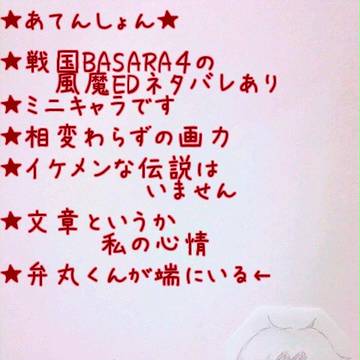 ★あてんしょん★
★戦国BASARA4の
風魔EDネタバレあり
★ミニキャラです
★相変わらずの画力
★イケメンな伝説は
いません
★文章というか
私の心情
★弁丸くんが端にいる←